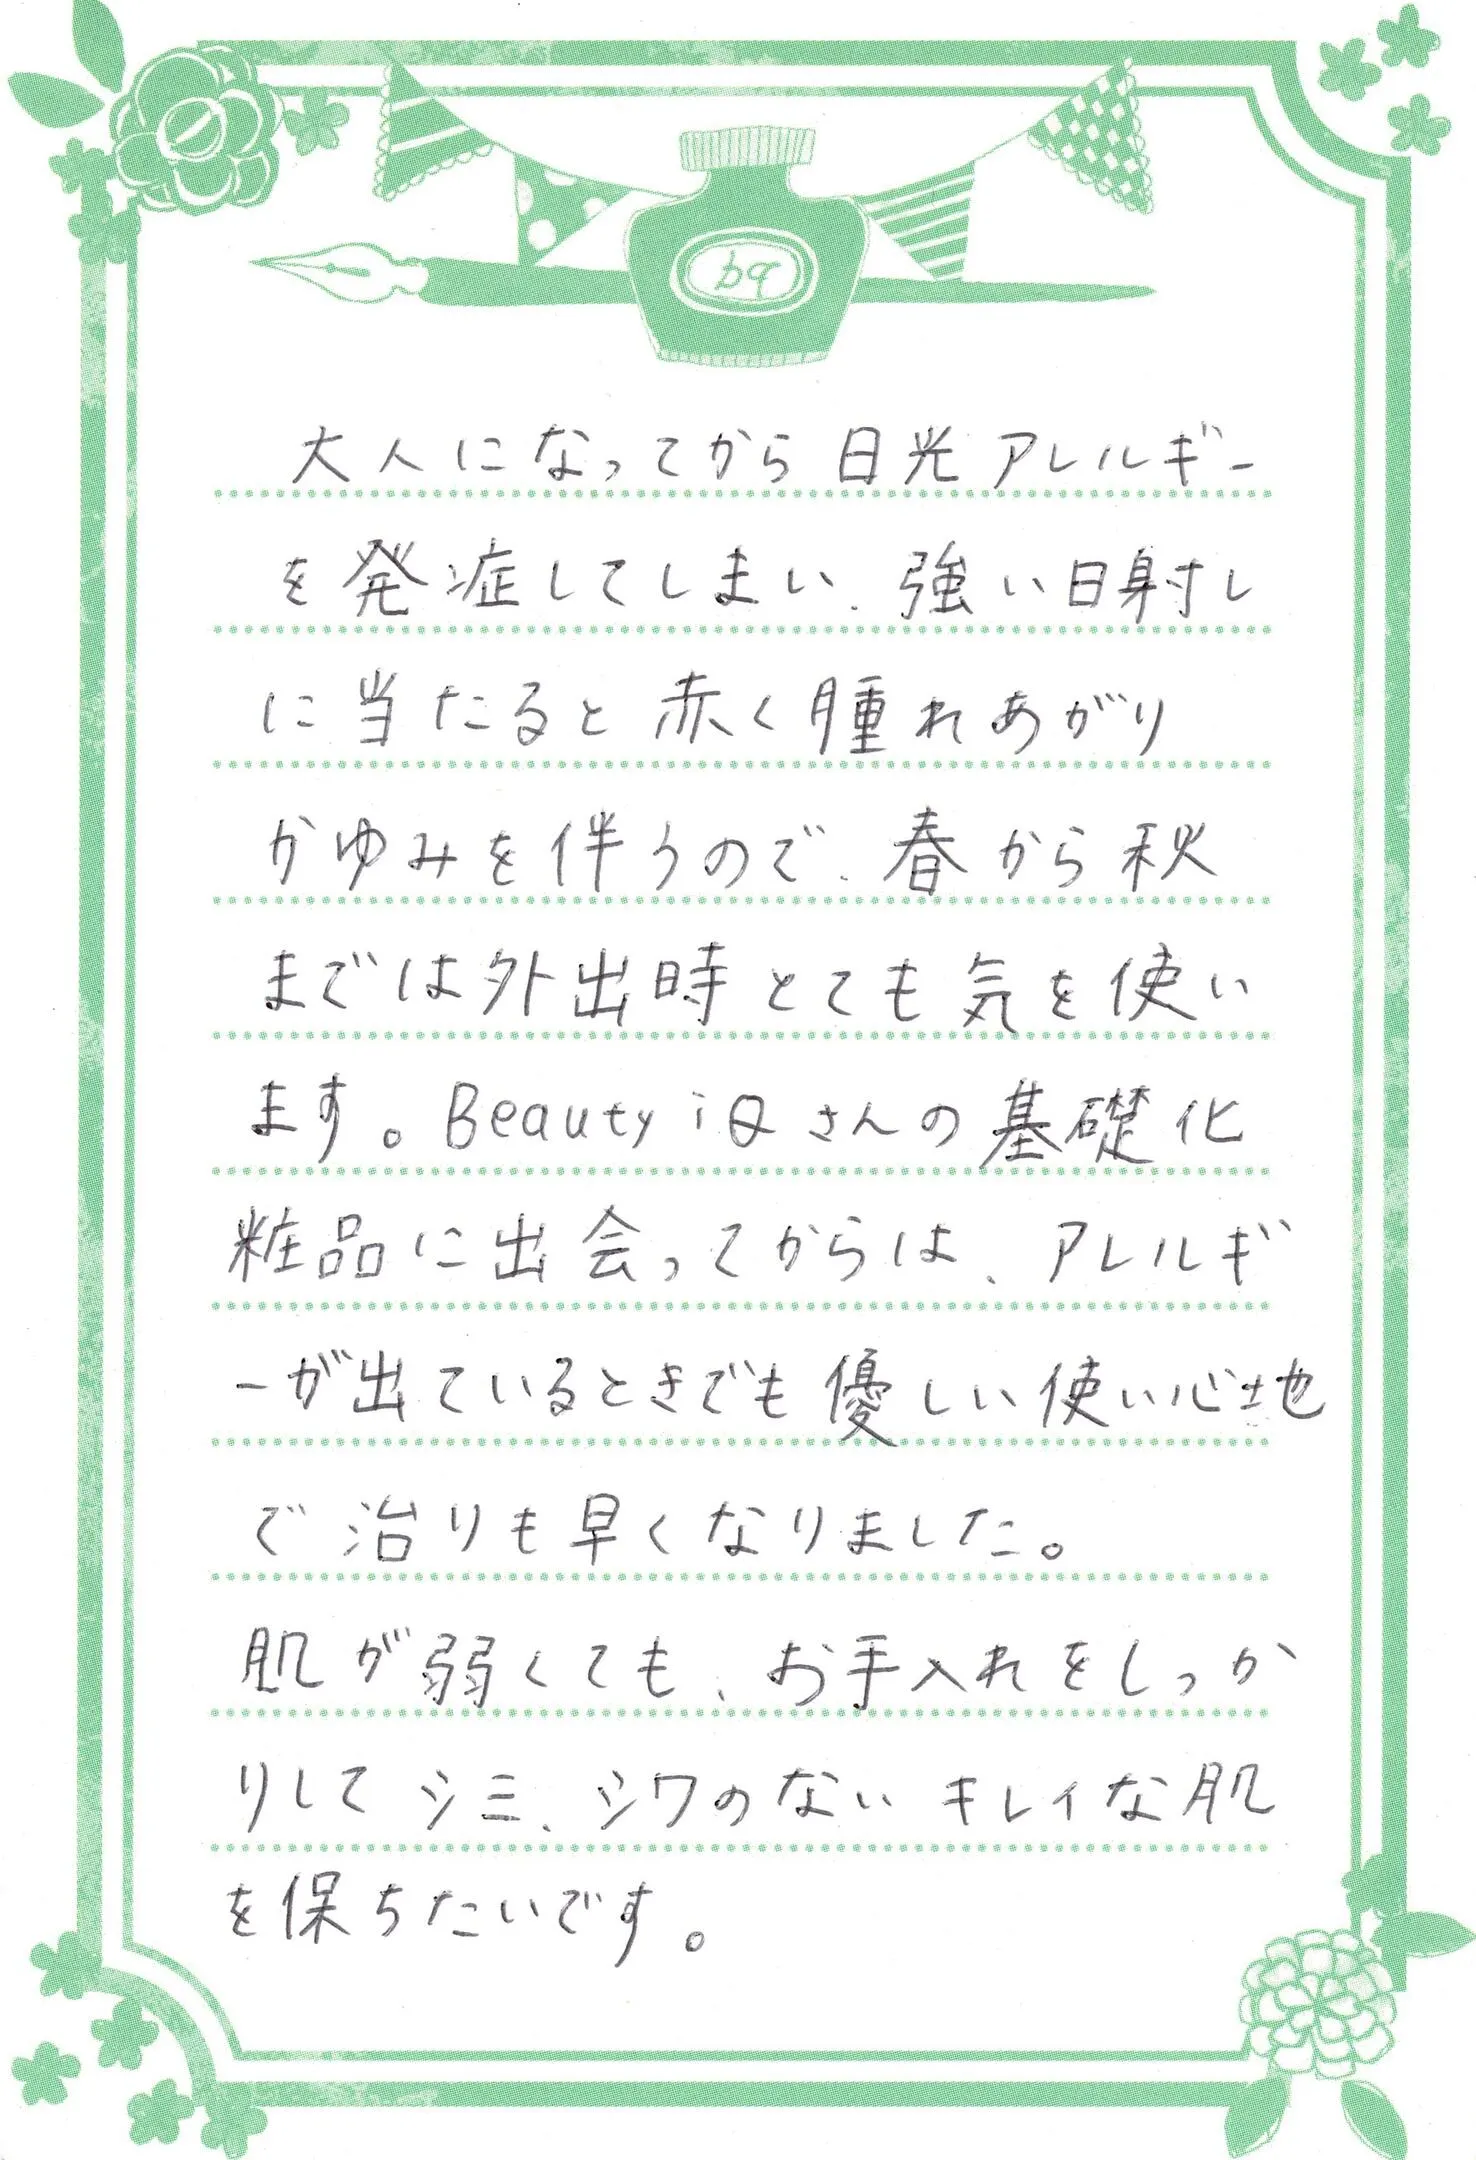 bq
大人になってから日光アレルギー
を発症してしまい、強い日射し
に当たると赤く腫れあがり
かゆみを伴うので、春から秋
までは外出時とても気を使い
ます。Beauty iQさんの基礎化
粧品に出会ってからは、アレルギ
ーが出ているときでも優しい使い心地
で治りも早くなりました。
肌が弱くても、お手入れをしっか
りしてシミ、シワのないキレイな肌
を保ちたいです。